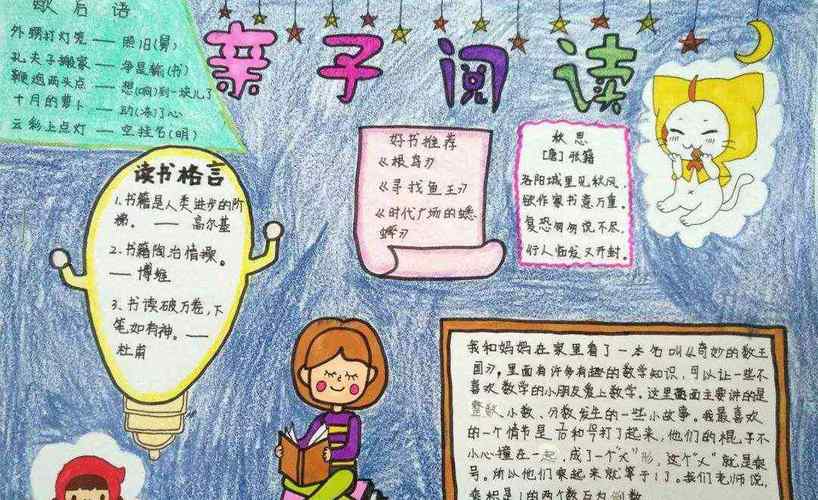 歇后语
外甥打灯笼——照旧(舅)
孔夫子搬家——争是输(书)
鞭炮两头点——想(响)到一块儿了
十月的萝卜——动(冻)了心
云彩上点灯——空挂名(明)
亲子阅读
读书格言
1.书籍是人类进步的阶
梯。——高尔基
2.书籍陶冶情操。
——博继
3.书读破万卷,下
笔如有神。——
杜甫
好书推荐
《根鸟》
《寻找鱼王》
《时代广场的蟋
蟀》
秋思
[唐]张籍
洛阳城里见秋风,
欲作家书意万重。
复恐匆匆说不尽,
行人临发又开封。
我和妈妈在家里看了一本名叫《奇妙的数王
国》,里面有许多有趣的数学知识,可以让一些不
喜欢数学的小朋友爱上数学。这里面面主要讲的是
整数、小数、分数发生的一些小故事。我最喜欢
的一个情节是
打了起来,他们的棍子不
小心撞在一起,成了个"乂"形,这个"乂"就是乘
号。所以他们乘起来就等于1了。我们老师说,
乘积是1的两个数互为倒数